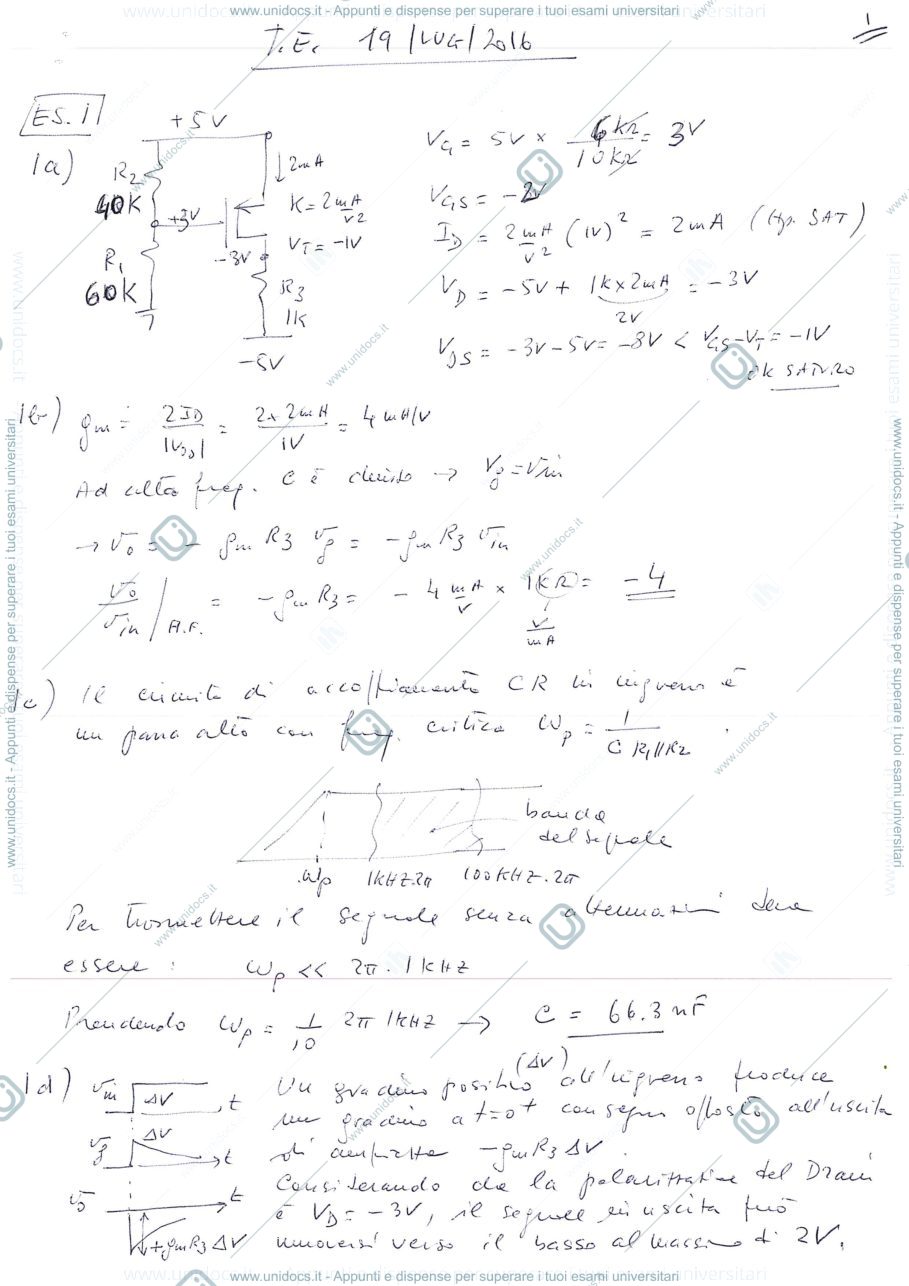 www.unidocs.it - Appunti e dispense per superare i tuoi esami universitari
1
T.E. 19/LUG/2016
ES. 1
1a)
+5V
R2
40K
+3V
R1
60K
2mA
K=2mA/V2
VT=-1V
-3V
R3
1K
-5V
VG = 5V x 6KΩ/10KΩ = 3V
VGS = -2V
ID = 2mA/V2 (1V)2 = 2mA (Hp. SAT)
VD = -5V + 1K x 2mA = -3V
2V
VDS = -3V-5V = -8V < VGS-VT = -1V
OK SATURO
1b) gm = 2ID/|Vod| = 2x2mA/1V = 4mA/V
Ad alta freq. C è chiuso → vg = vin
→ vo = - gm R3 vg = -gm R3 vin
vo/vin|A.F. = -gm R3 = - 4 mA/V x 1KΩ = -4
V/mA
1c) Il circuito di accoppiamento CR in ingresso è
un passa alto con freq. critica ωp = 1/C R1||R2 .
banda
del segnale
ωp 1KHZ·2π 100KHZ·2π
Per trasmettere il segnale senza attenuazioni deve
essere : ωp << 2π · 1KHZ
Prendendo ωp = 1/10 2π 1KHZ → C = 66.3 nF
1d) vin ΔV t
vg ΔV t
vo t
+gmR3 ΔV
Un gradino positivo (ΔV) all'ingresso produce
un gradino a t=0+ con segno opposto all'uscita
di ampiezza -gmR3 ΔV.
Considerando che la polarizzazione del Drain
è VD = -3V, il segnale in uscita può
muoversi verso il basso al massimo di 2V.
www.unidocs.it - Appunti e dispense per superare i tuoi esami universitari